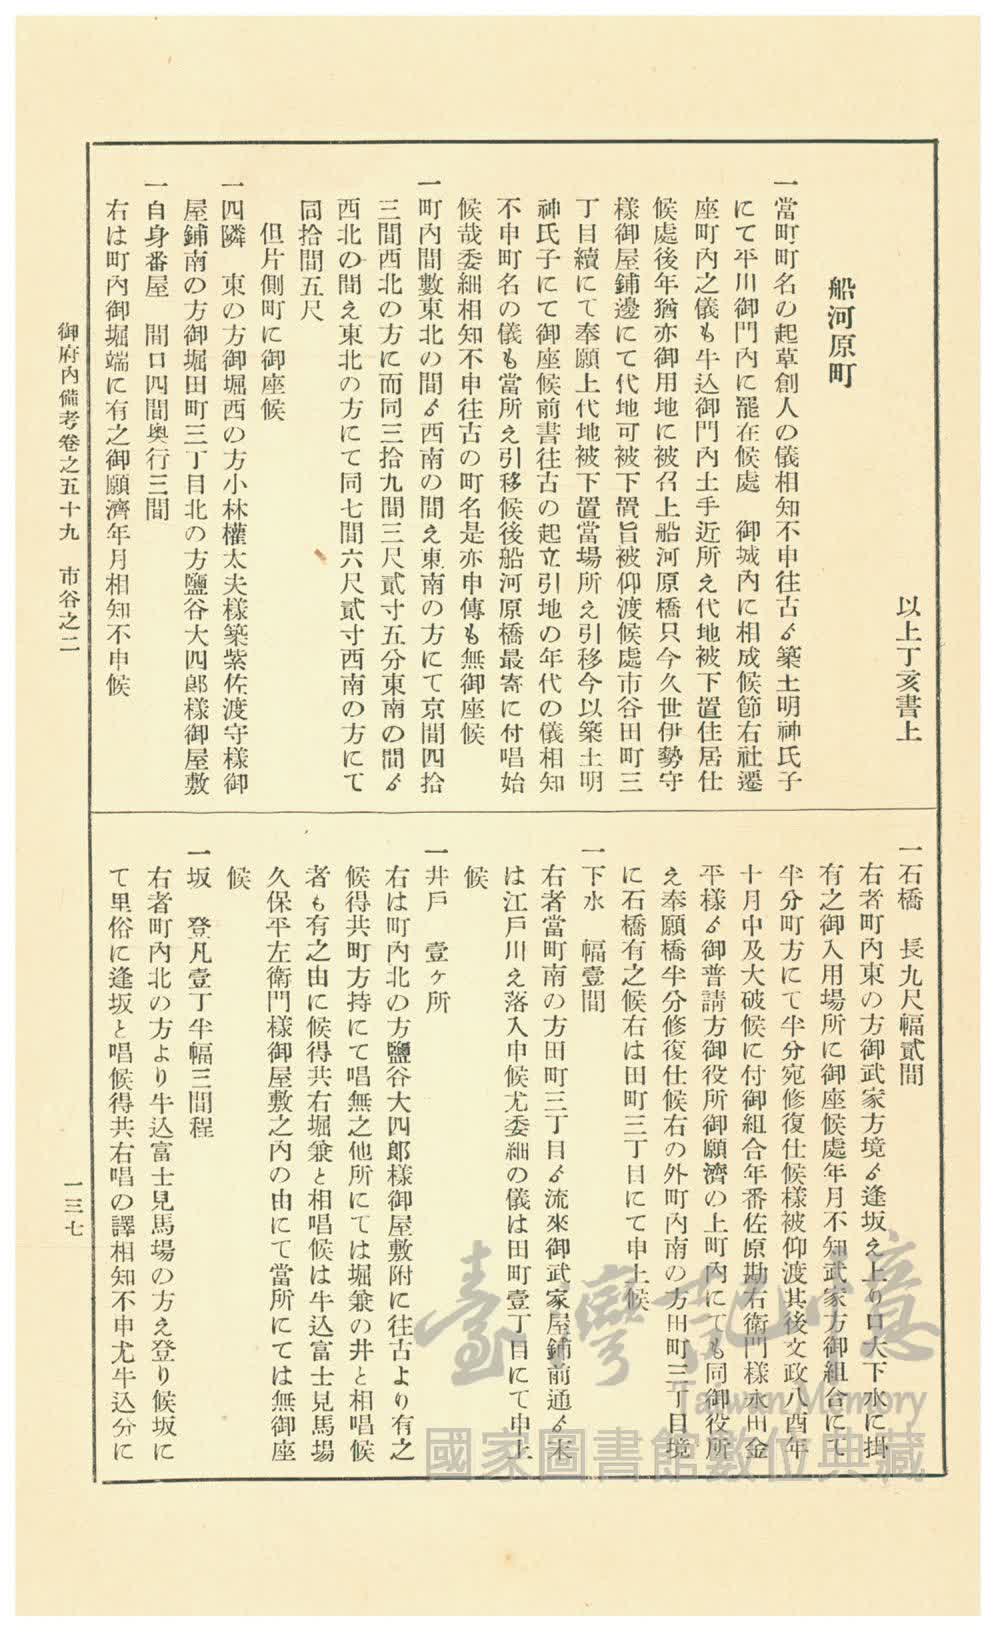 以上丁亥書上
船河原町
一當町町名の起草創人の儀相知不申往古ゟ築土明神氏子
にて平川御門內に罷在候處　御城內に相成候節右社遷
座町內之儀も牛込御門內土手近所え代地被下置住居仕
候處後年猶亦御用地に被召上船河原橋只今久世伊勢守
樣御屋鋪邊にて代地可被下置旨被仰渡候處市谷田町三
丁目續にて奉願上代地被下置當場所え引移今以築土明
神氏子にて御座候前書往古の起立引地の年代の儀相知
不申町名の儀も當所え引移候後船河原橋最寄に付唱始
候哉委細相知不申往古の町名是亦申傳も無御座候
一町內間數東北の間ゟ西南の間え東南の方にて京間四拾
三間西北の方に而同三拾九間三尺貳寸五分東南の間ゟ
西北の間え東北の方にて同七間六尺貳寸西南の方にて
同拾間五尺
但片側町に御座候
一四隣　東の方御堀西の方小林權太夫樣築紫佐渡守樣御
屋鋪南の方御堀田町三丁目北の方鹽谷大四郎樣御屋敷
一自身番屋　間口四間奧行三間
右は町內御堀端に有之御願濟年月相知不申候
一石橋　長九尺幅貳間
右者町內東の方御武家方境ゟ逢坂え上り口大下水に掛
有之御入用場所に御座候處年月不知武家方御組合にて
半分町方にて半分宛修復仕候樣被仰渡其後文政八酉年
十月中及大破候に付御組合年番佐原勘右衞門樣永田金
平樣ゟ御普請方御役所御願濟の上町內にても同御役所
え奉願橋半分修復仕候右の外町內南の方田町三丁目境
に石橋有之候右は田町三丁目にて申上候
一下水　幅壹間
右者當町南の方田町三丁目ゟ流來御武家屋鋪前通ゟ末
は江戶川え落入申候尤委細の儀は田町壹丁目にて申上
候
一井戶　壹ヶ所
右は町內北の方鹽谷大四郎樣御屋敷附に往古より有之
候得共町方持にて唱無之他所にては堀兼の井と相唱候
者も有之由に候得共右堀兼と相唱候は牛込富士見馬場
久保平左衞門樣御屋敷之內の由にて當所にては無御座
候
一坂　登凡壹丁半幅三間程
右者町內北の方より牛込富士見馬場の方え登り候坂に
て里俗に逢坂と唱候得共右唱の譯相知不申尤牛込分に
御府內備考卷之五十九　市谷之二
一三七
臺灣記憶
Taiwan Memory
國家圖書館數位典藏